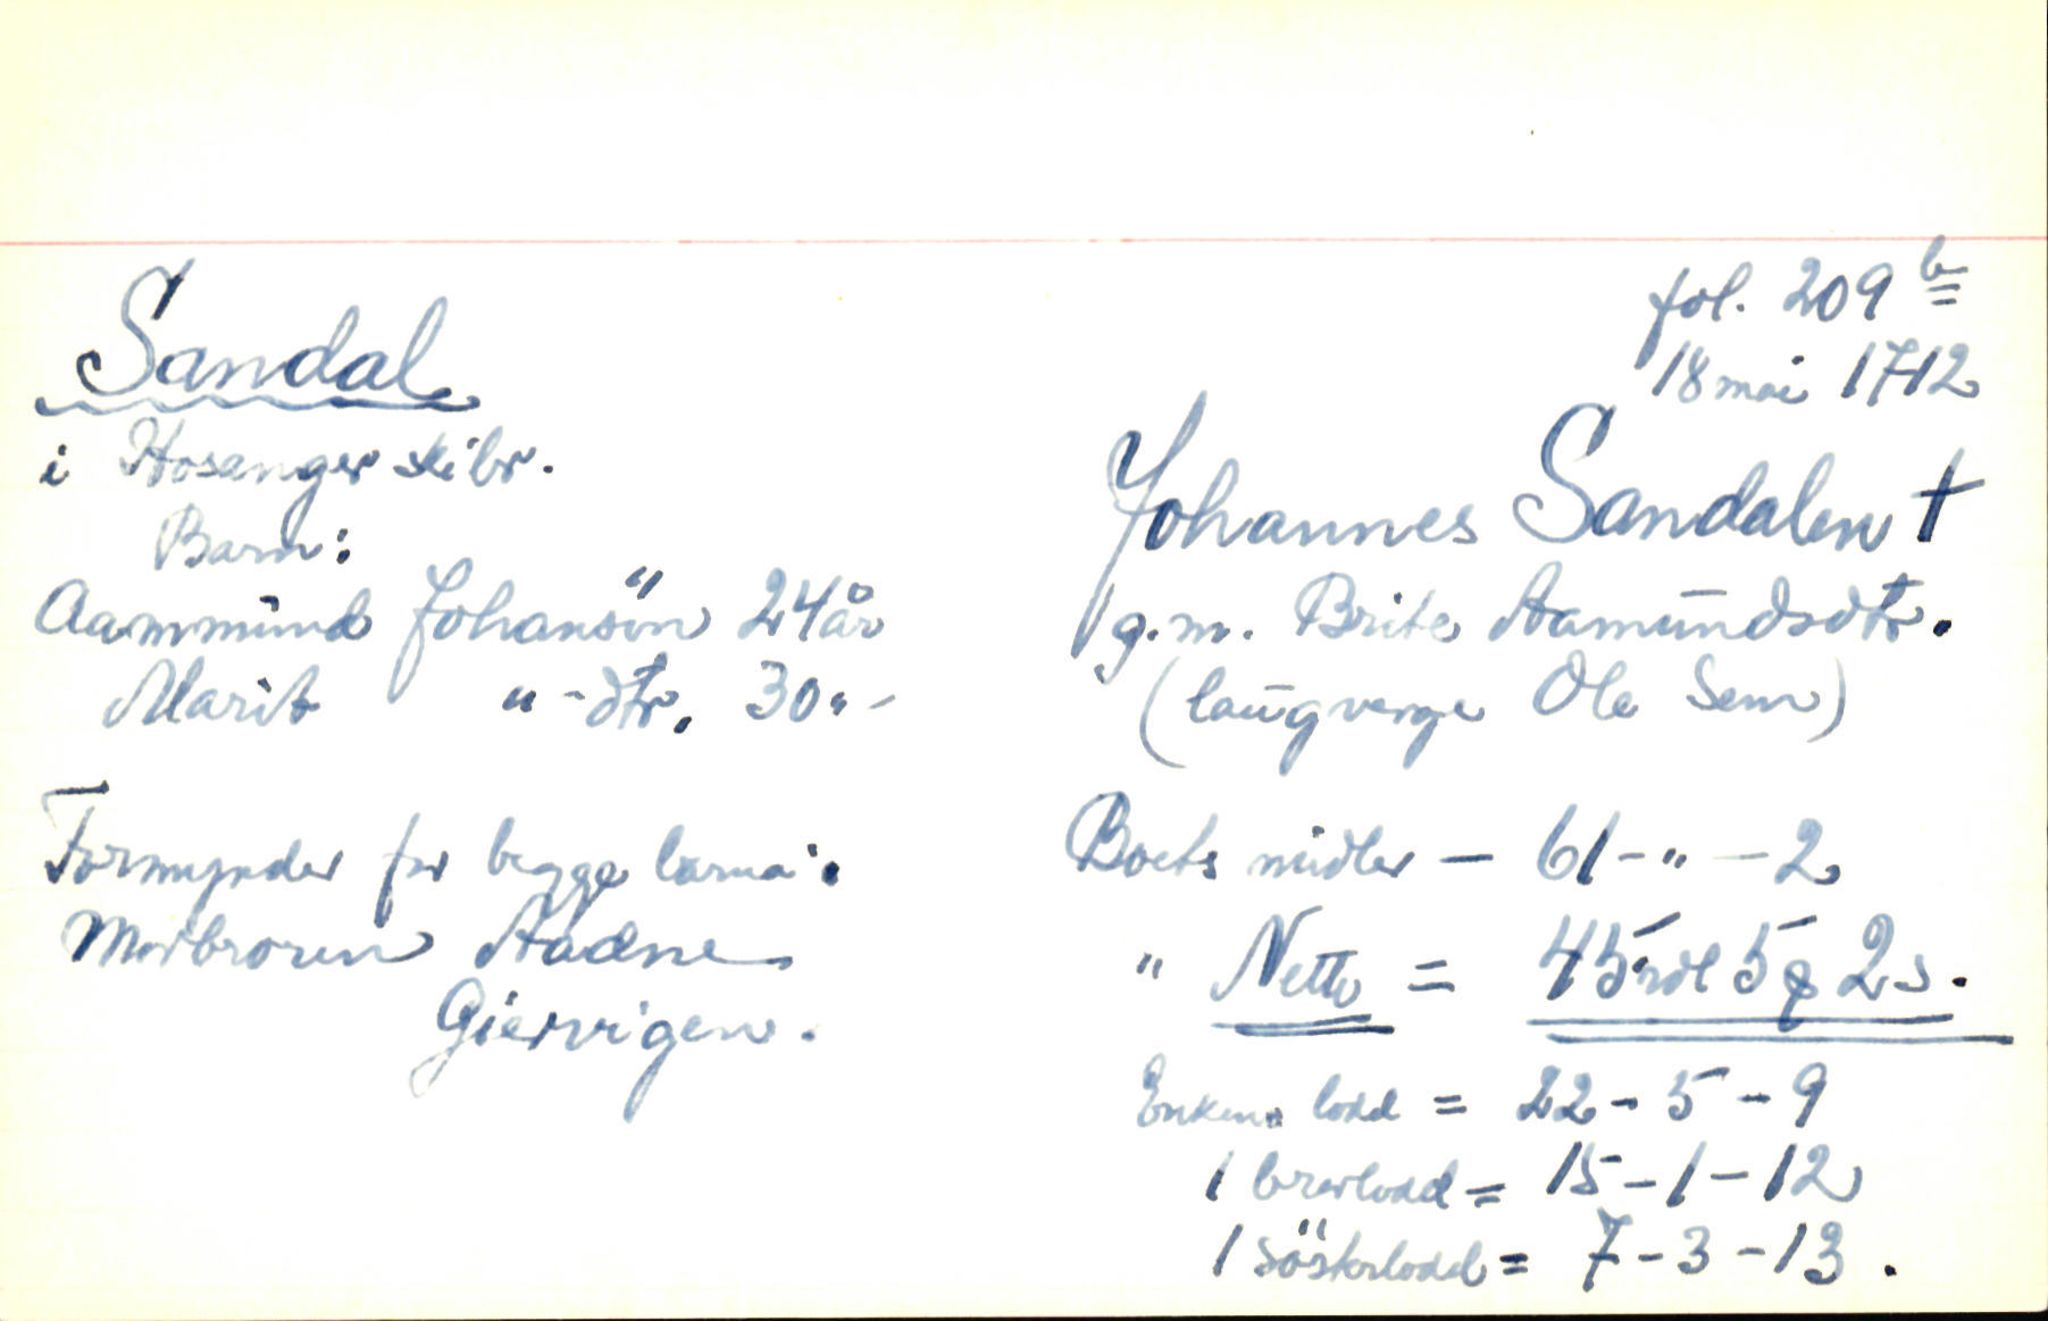 Sandal
i Hosanger skibr.
Barn:
Aammund Johansön 24 år
Marit " - dtr. 30 " -
Formynder for begge barna:
Morbroren Aadne
Giervigen.
fol. 209 b
18 mai 1712
Johannes Sandalen †
g.m. Brite Aamundsdtr.
(laugverge Ole Sem)
Boets midler - 61 - " - 2
" Netto = 45 rdl 5 ₰ 2 s.
Enkens lodd = 22 - 5 - 9
1 brorlodd = 15 - 1 - 12
1 sösterlodd = 7 - 3 - 13.